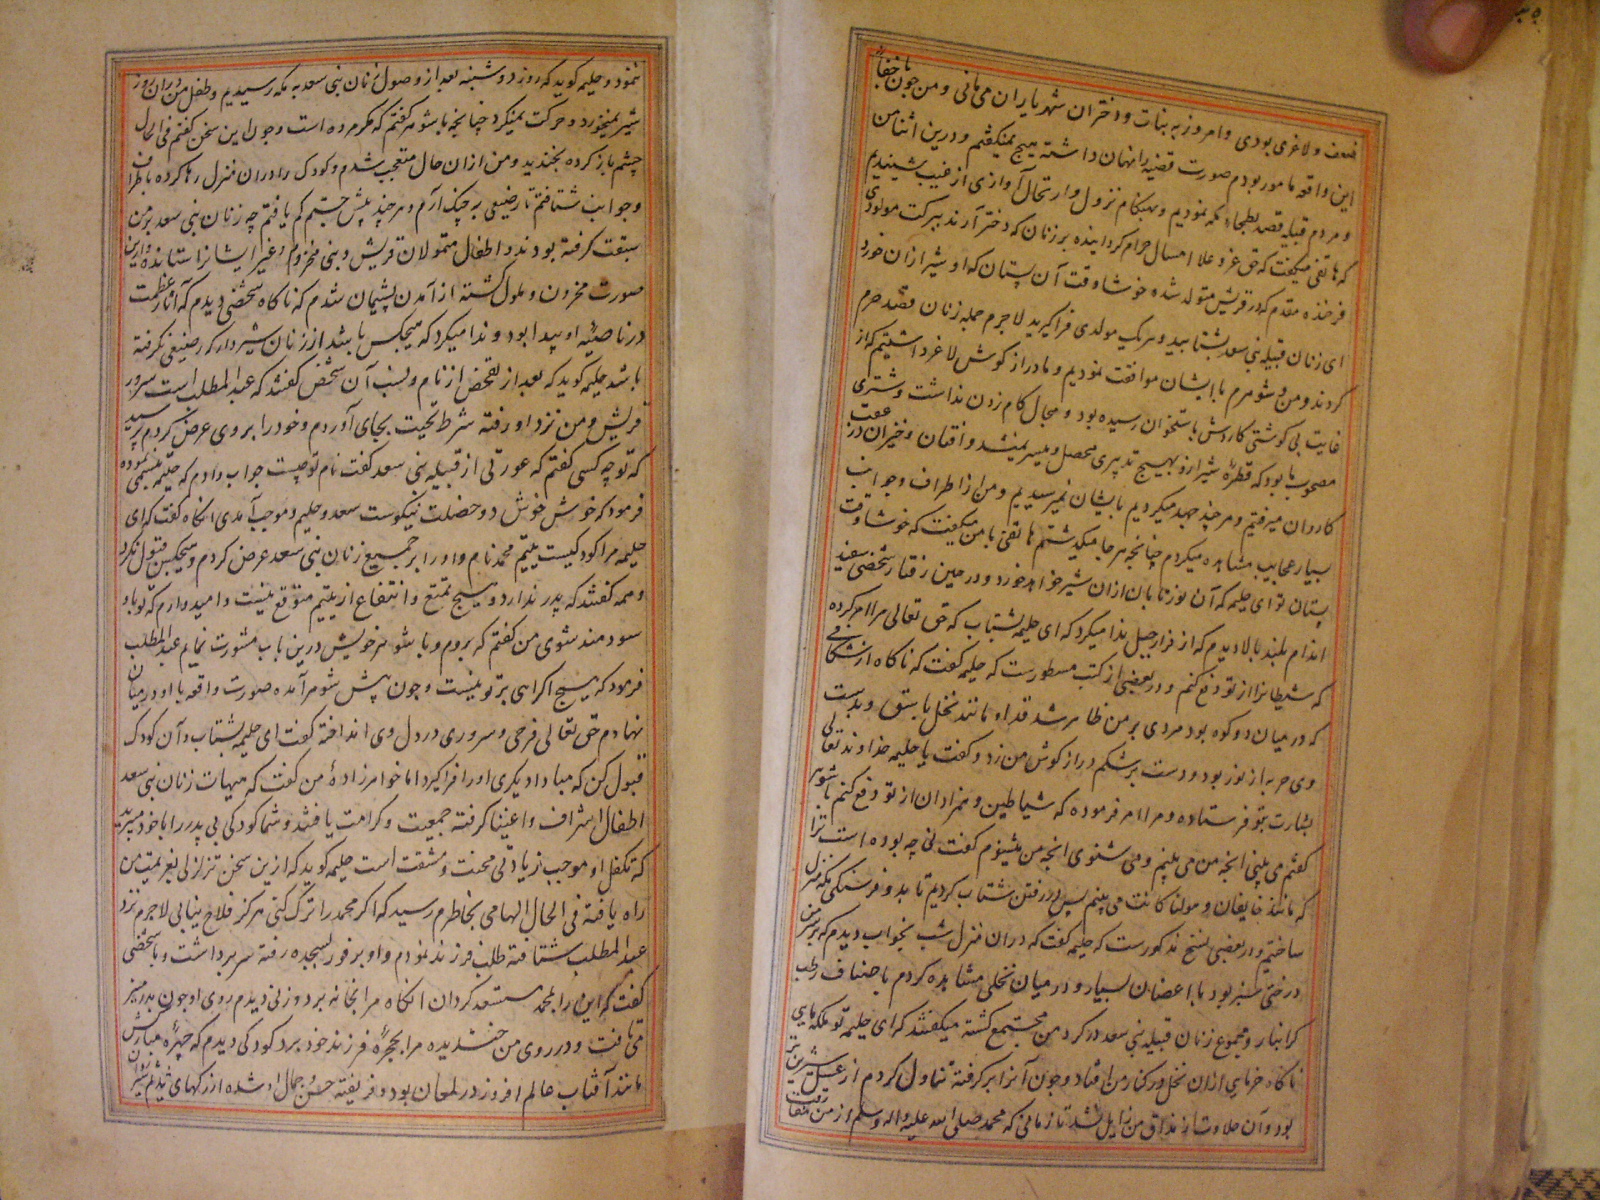 ضعف و لاغری بودی و امروز به بنات و دختران شهریاران می مانی و من چون باخفای
این واقعه مامور بودم صورت قضیه را نهان داشته هیچ نمیگفتم و درین اثنا من
و مردم قبیله قصد بطحاء مکه نمودیم و بهنگام نزول و ارتحال آوازی از غیب شنیدیم
که هاتفی میگفت که حق عز و علا امسال حرام گردانیده بر زنان که دختر آرند ببرکت مولودی
فرخنده مقدم که در قریش متولد شده خوشا وقت آن پستان که او شیر ازان خورد
ای زنان قبیله بنی سعد بشتابید و هر یک مولدی فرا گیرید لاجرم جمله زنان قصد حرم
کردند و من و شوهرم با ایشان موافقت نمودیم و ما دراز گوش لاغر داشتیم که از
غایت بی گوشتی کاردش باستخوان رسیده بود و مجال گام زدن نداشت و شتری
مصحوب ما بود که قطره شیر ازو بهیچ تدبیری محصل و میسر نمیشد و افتان و خیزان در عقب
کاروان میرفتیم و هر چند جهد میکردیم بایشان نمیرسیدیم و من از اطراف و جوانب
بسیار عجایب مشاهده میکردم چنانچه بر هر جا میگذشتم هاتفی با من میگفت که خوشا وقت
پستان تو ای حلیمه که آن نور تابان ازان شیر خواهد خورد و در حین رفتار شخصی سفید
اندام بلند بالا دیدم که از فراز جبل ندا میکرد که ای حلیمه بشتاب که حق تعالی مرا امر کرده
که شیطانرا از تو دفع کنم و در بعضی از کتب مسطورست که حلیمه گفت که ناگاه از شکافی
که در میان دو کوه بود مردی بر من ظاهر شد قد او مانند نخل باسق و بدست
وی حربه از نور بود و دست بر شکم دراز گوش من زد و گفت یا حلیمه خداوند تعالی
بشارت بتو فرستاده و مرا امر فرموده که شیاطین و نمرادان از تو دفع کنم با شوهر
گفتم می بینی انچه من می بینم و می شنوی انچه من بشنوم گفت نی چه بوده است ترا
که مانند خایفان و مولنا کانت می بینم پس در رفتن شتاب کردیم تا بدو فرسنگی مکه منزل
ساختیم و در بعضی نسخ مذکورست که حلیمه گفت که دران منزل شب بخواب دیدم که بر سر من
درختی سبز بود با اغصان بسیار و در میان نخلی مشاهده کردم باصناف رطب
گرانبار و مجموع زنان قبیله بنی سعد در گرد من مجتمع گشته میگفتند که ای حلیمه تو ملکه مایی
ناگاه خرمایی ازان نخل در کنار من افتاد و چون آنرا بر گرفته تناول کردم از عسل شیرین تر
بود و آن حلاوت از مذاق من زایل نشد تا زمانی که محمد صلی الله علیه و اله و سلم از من مفارقت
نمود و حلیمه گوید که روز دوشنبه بعد از وصول زنان بنی سعد به مکه رسیدیم و طفل من دران روز
شیر نمیخورد و حرکت نمیکرد چنانچه با شوهر گفتم که مگر مرده است و چون این سخن گفتم فی الحال
چشم باز کرده بخندید و من ازان حال متعجب شدم و کودک را دران منزل رها کرده باطراف
و جوانب شتافتم تا رضیعی بر چنگ آرم و هر چند پیش جستم کم یافتم چه زنان بنی سعد بر من
سبقت گرفته بودند و اطفال متمولان قریش و بنی مخزوم و غیر ایشانرا ستانده و ازین
صورت محزون و ملول گشته از آمدن پشیمان شدم که ناگاه شخصی دیدم که آثار عظمت
در ناصیه او پیدا بود و ندا میکرد که هیچکس باشد از زنان شیردار که رضیعی نگرفته
باشد حلیمه گوید که بعد از تفحص از نام و نسب آن شخص گفتند که عبدالمطلب است سرور
قریش و من نزد او رفته شرط تحیت بجای آوردم و خود را بر وی عرض کردم پرسید
که تو چه کسی گفتم که عورتی از قبیله بنی سعد گفت نام تو چیست جواب دادم که حلیمه تبسمی نموده
فرمود که خوش خوش دو خصلت نیکوست سعد و حلیم و موجب آمدی انگاه گفت که ای
حلیمه مرا کودکیست یتیم محمد نام و او را بر جمیع زنان بنی سعد عرض کردم و هیچکس قبول نکرد
و همه گفتند که پدر ندارد و هیچ تمتع و انتفاع از یتیم متوقع نیست و امیدوارم که تو باو
سودمند شوی من گفتم که بروم و با شوهر خویش درین باب مشورت نمایم عبدالمطلب
فرمود که هیچ اکراهی بر تو نیست و چون پیش شوهر آمده صورت واقعه با او در میان
نهادم حق تعالی فرحی و سروری در دل وی انداخته گفت ای حلیمه بشتاب و آن کودک
قبول کن که مبادا دیگری او را فرا گیرد اما خواهرزاده من گفت که هیهات زنان بنی سعد
اطفال اشراف و اغنیا گرفته جمعیت و کرامت یافتند و شما کودکی بی پدر را با خود میبرید
که تکفل او موجب زیادتی محنت و مشقت است حلیمه گوید که ازین سخن تزلزلی بعزیمت من
راه یافته فی الحال الهامی بخاطرم رسید که اگر محمد را ترک کنی هرگز فلاح نیابی لاجرم نزد
عبدالمطلب شتافته طلب فرزند نمودم و او بر فور بسجده رفته سر برداشت و با شخصی
گفت که این را لمحمد مستسعد گردان انگاه مرا بخانه برد و زنی دیدم روی او چون بدر منیر
می تافت و در روی من خندیده مرا بحجره فرزند خود برد کودکی دیدم که چهره مبارکش
مانند آفتاب عالم افروز در لمعان بود و فریفته حسن و جمال او شده از رگهای ثدیم شیر روان